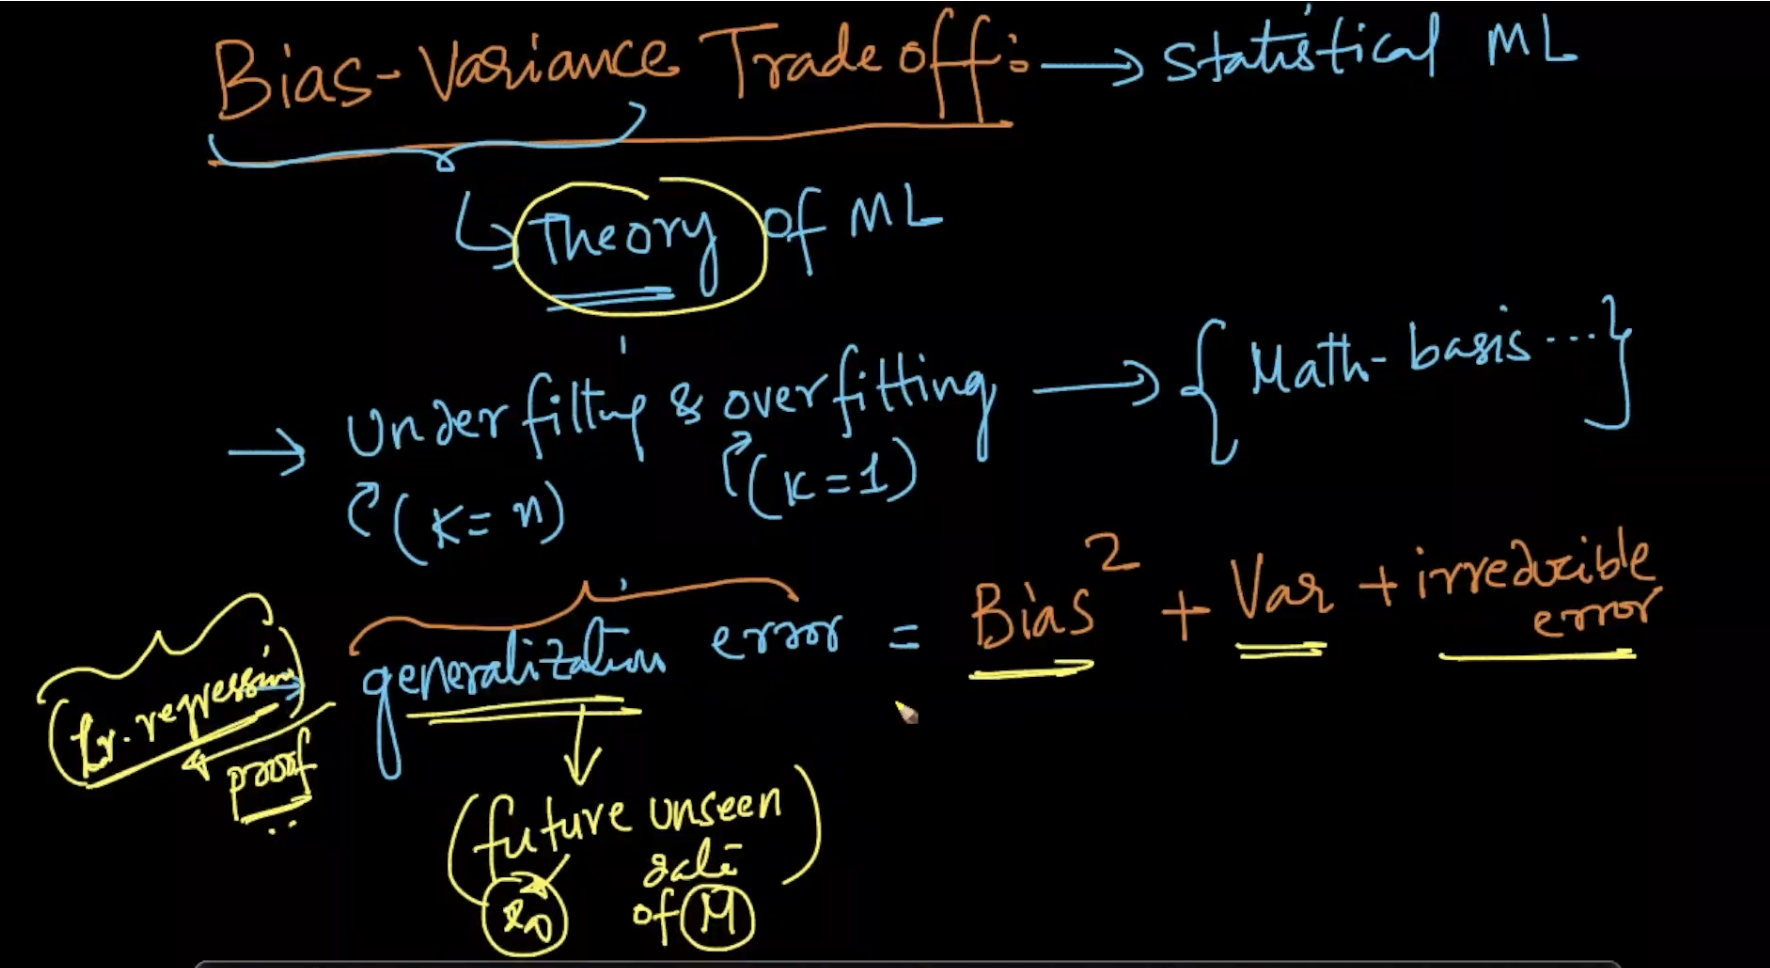 Bias-Variance Trade off: → Statistical ML
↳ Theory of ML
→ Underfitting & overfitting → { Math-basis ... }
(K = n) (K = 1)
generalization error = Bias² + Var + irreducible error
(Lr. regression)
proof
(future unseen
of M)